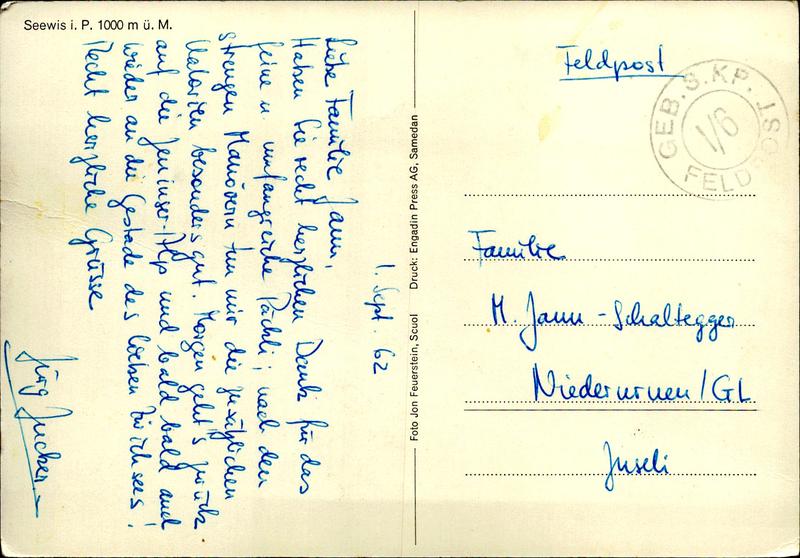 Seewis i. P. 1000 m ü. M.
1. Sept. 62
Liebe Familie Jann,
Haben Sie recht herzlichen Dank für das
feine u. umfangreiche Päckli; nach den
strengen Manövern tun mir die zusätzlichen
Kalorien besonders gut. Morgen geht's zurück
auf die Jeninser-Alp und bald bald auch
wieder an die Gestade des lieben Zürichsees!
Recht herzliche Grüsse
Jürg Zucker
Foto Jon Feuerstein, Scuol Druck: Engadin Press AG, Samedan
Feldpost
GEB. S. KP.
I/6
FELDPOST
Familie
M. Jann-Schaltegger
Niederurnen/GL
Juseli